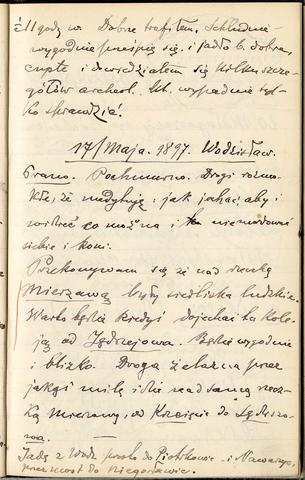 i 11 godz w Dobre trafiłem. Schludnie
wygodnie prześpię się, i jadło b. dobre,
i dowiedziałem się kilku szcze-
gółów archeol. kt. wypadnie tyl-
ko sprawdzić.
17/Maja. 1897. Wodzisław.
Rano. Pochmurno. Drogi rozmo-
kłe, że medytuję, jak jechać aby i
co można i nie
siebie i koni.
Przekonywam się że nad rzeką
Mierzawą były siedliska ludzkie.
Warto będzie kiedyś dojechać tu kole-
ją od Jędrzejowa. Będzie wygodnie
i blisko. Droga żelazna przez
jakąś milę idzie nad samą rzecz-
ką Mierzawą, od Krzcięcic do Sędziszo-
wa.
Jadę z Wodz. prosto do Piotrkowic - i Nawarzyc,
przez most do Niegosławic.